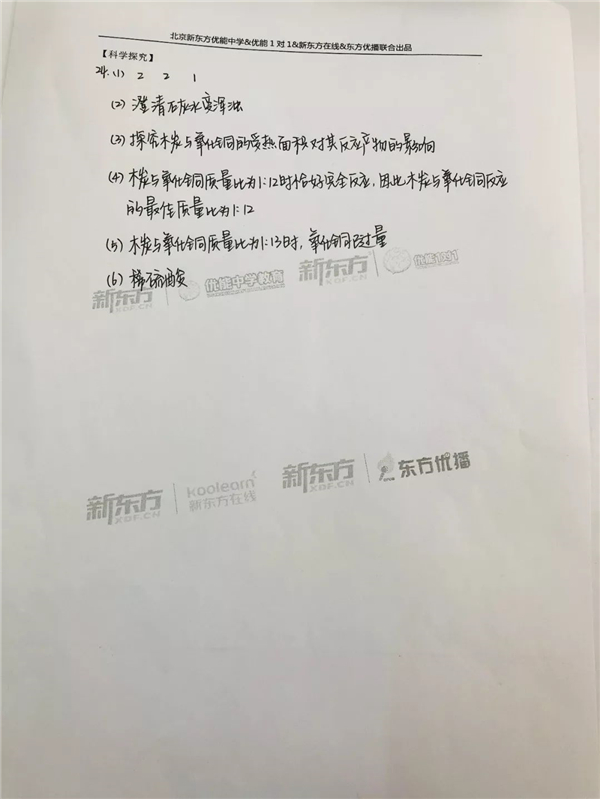 北京新东方优能中学&优能1对1&新东方在线&东方优播联合出品
【科学探究】
24.(1) 2 2 1
(2) 澄清石灰水变浑浊
(3) 探究木炭与氧化铜的受热面积对其反应产物的影响
(4) 木炭与氧化铜质量比为1:12时恰好完全反应,因此木炭与氧化铜反应
的最佳质量比为1:12
(5) 木炭与氧化铜质量比为1:13时,氧化铜已过量
(6) 稀硫酸
新东方 XDF.CN 优能中学教育 新东方 XDF.CN 优能1对1
新东方 XDF.CN koolearn 新东方在线 新东方 XDF.CN 东方优播